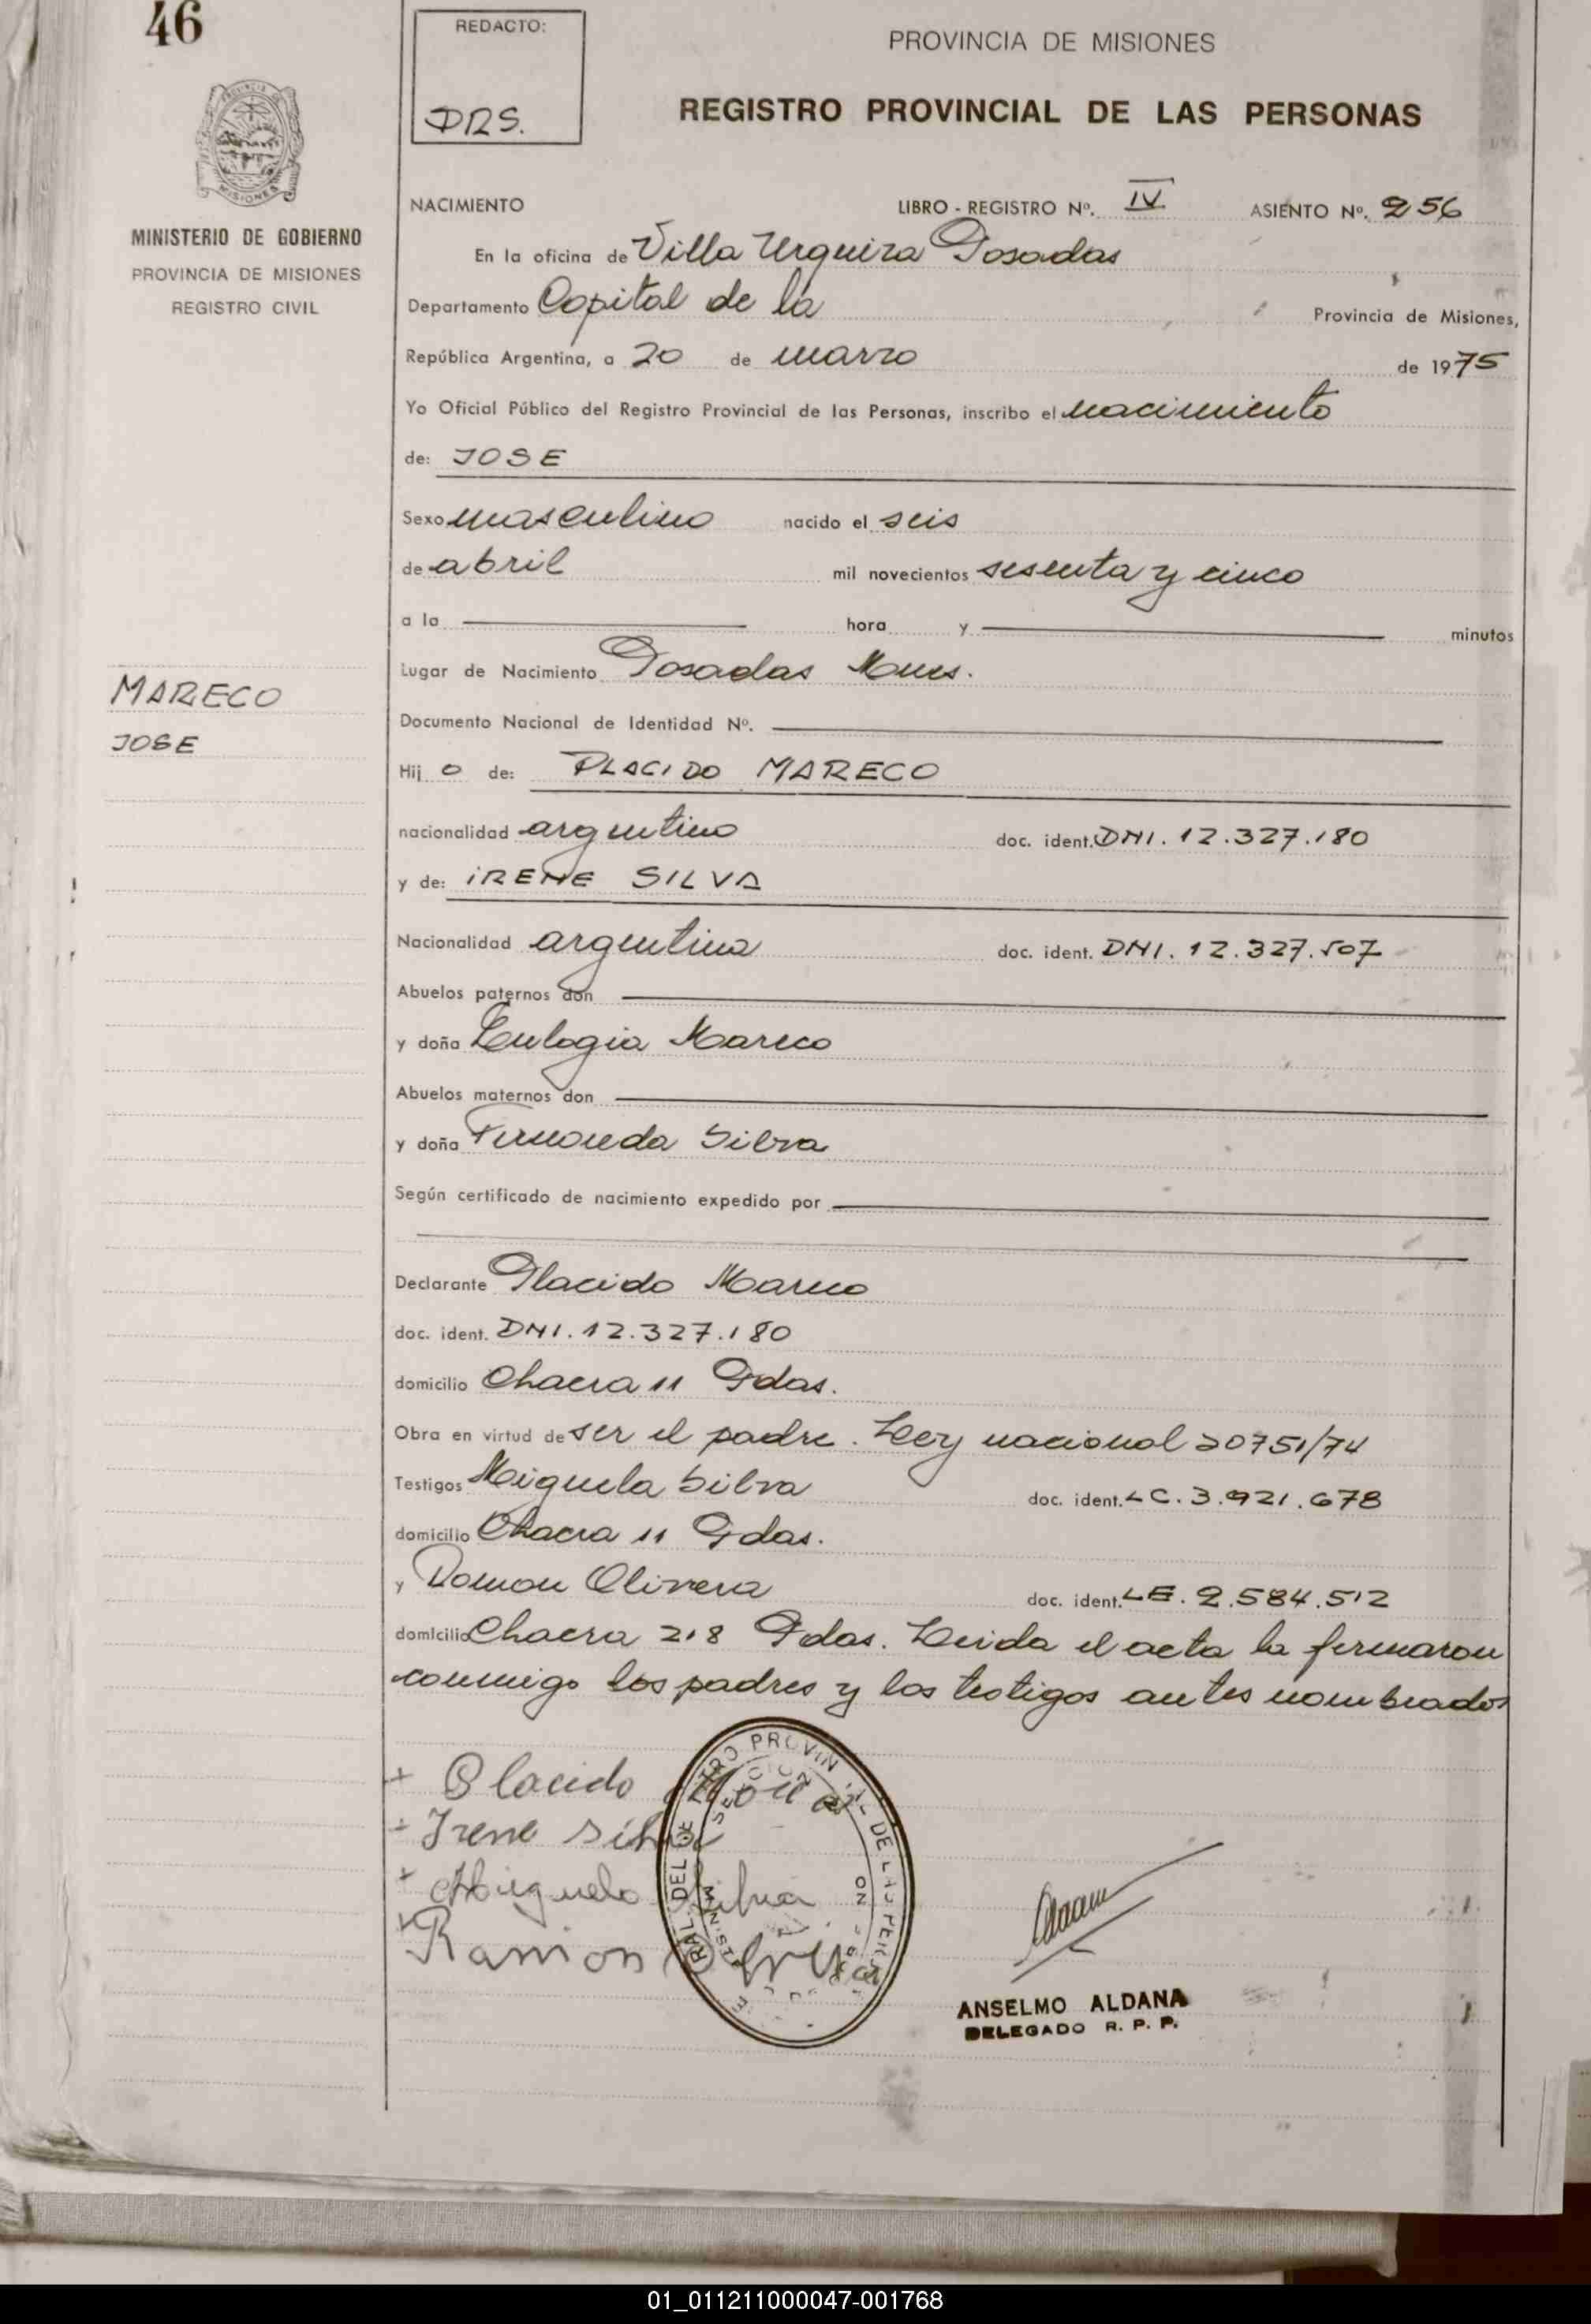 46
REDACTO:
DRS.
PROVINCIA DE MISIONES
REGISTRO PROVINCIAL DE LAS PERSONAS
MINISTERIO DE GOBIERNO
PROVINCIA DE MISIONES
REGISTRO CIVIL
NACIMIENTO LIBRO - REGISTRO Nº. IV ASIENTO Nº. 256
En la oficina de Villa Urquiza Posadas
Departamento Capital de la Provincia de Misiones,
República Argentina, a 20 de marzo de 1975
Yo Oficial Público del Registro Provincial de las Personas, inscribo el nacimiento
de: JOSE
Sexo masculino nacido el seis
de abril mil novecientos sesenta y cinco
a la hora y minutos
Lugar de Nacimiento Posadas Mnes.
MARECO
JOSE
Documento Nacional de Identidad Nº.
Hij o de: PLACIDO MARECO
nacionalidad argentino doc. ident. DNI. 12.327.180
y de: IRENE SILVA
Nacionalidad argentina doc. ident. DNI. 12.327.507
Abuelos paternos don
y doña Eulogia Mareco
Abuelos maternos don
y doña Fernanda Silva
Según certificado de nacimiento expedido por
Declarante Placido Mareco
doc. ident. DNI. 12.327.180
domicilio Chacra 11 Pdas.
Obra en virtud de ser el padre. Ley nacional 20751/74
Testigos Miguela Silva doc. ident. LC. 3.921.678
domicilio Chacra 11 Pdas.
y Ramon Olivera doc. ident. LE. 2.584.512
domicilio Chacra 218 Pdas. Leida el acta la firmaron
conmigo los padres y los testigos antes nombrados
Placido
Irene Silva
Miguela Silva
Ramon
ANSELMO ALDANA
DELEGADO R. P. P.
01_011211000047-001768